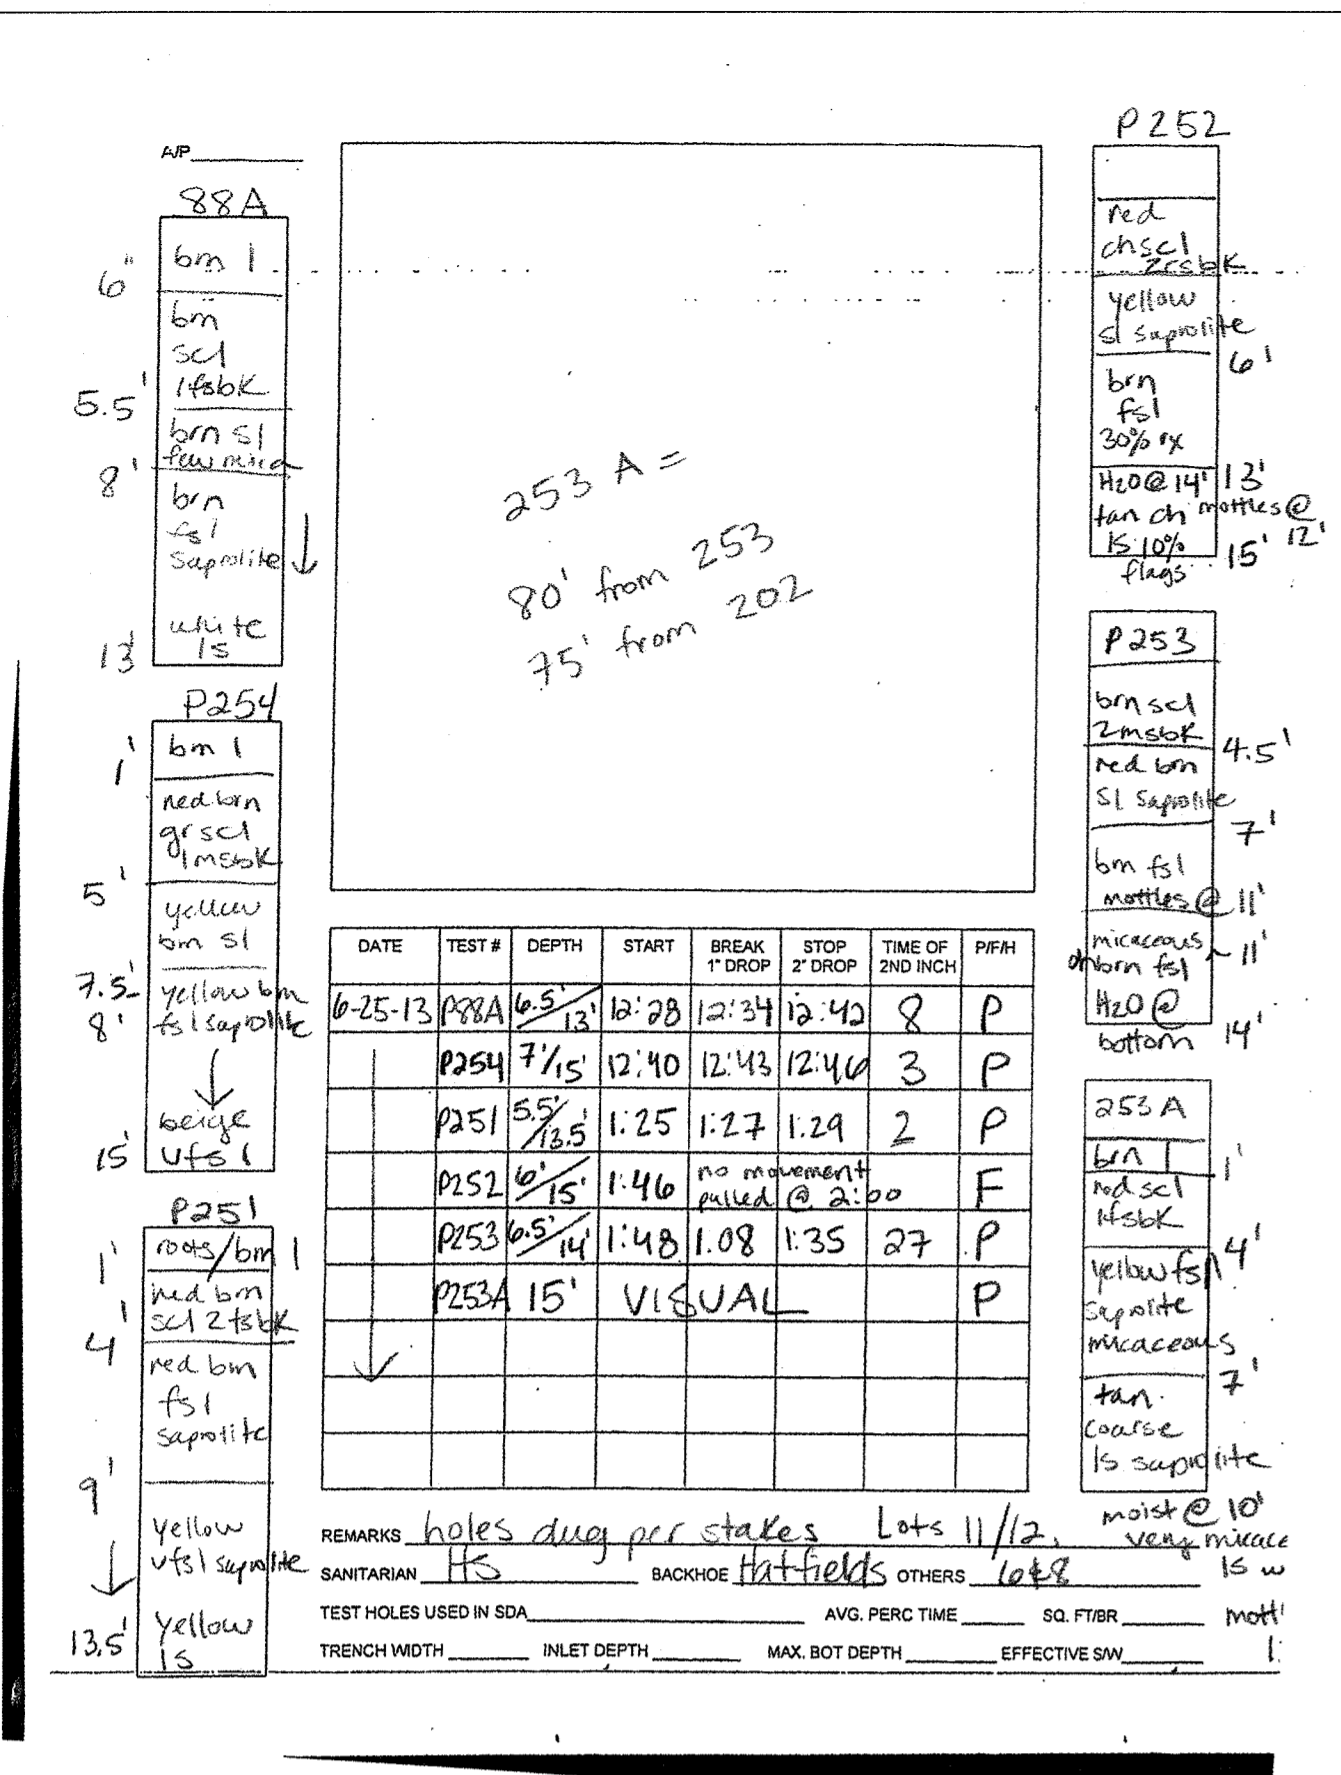 A/P
88A
6"
brn l
brn
scl
1fsbk
5.5'
brn sl
few mica
8'
brn
fsl
saprolite
white
ls
13'
P254
1'
brn l
red brn
gr scl
1msbk
5'
yellow
brn sl
7.5'
8'
yellow brn
fsl saprolite
beige
vfsl
15'
P251
roots/brn l
1'
red brn
scl 2fsbk
4'
red brn
fsl
saprolite
9'
yellow
vfsl saprolite
yellow
ls
13.5'
253 A =
80' from 253
75' from 202
P252
red
chscl
yellow
sl saprolite
6'
brn
fsl
30% rx
13'
H2O @ 14'
mottles @
12'
tan ch
ls 10%
flags
15'
P253
brn scl
2msbk
4.5'
red brn
sl saprolite
7'
brn fsl
mottles @ 11'
micaceous
brn fsl
~ 11'
H2O @
bottom
14'
253 A
brn l
1'
red scl
1fsbk
4'
yellow fsl
saprolite
micaceous
7'
tan
coarse
ls saprolite
moist @ 10'
very micace
ls w
mott
DATE TEST # DEPTH START BREAK 1" DROP STOP 2" DROP TIME OF 2ND INCH P/F/H
6-25-13 P88A 6.5'/13' 12:28 12:34 12:42 8 P
P254 7'/15' 12:40 12:43 12:46 3 P
P251 5.5'/13.5' 1:25 1:27 1:29 2 P
P252 6'/15' 1:46 no movement pulled @ 2:00 F
P253 6.5'/14' 1:48 1:08 1:35 27 P
P253A 15' VISUAL P
REMARKS holes dug per stakes Lots 11/12,
SANITARIAN HS BACKHOE Hatfields OTHERS 6&8
TEST HOLES USED IN SDA AVG. PERC TIME SQ. FT/BR
TRENCH WIDTH INLET DEPTH MAX. BOT DEPTH EFFECTIVE S/W